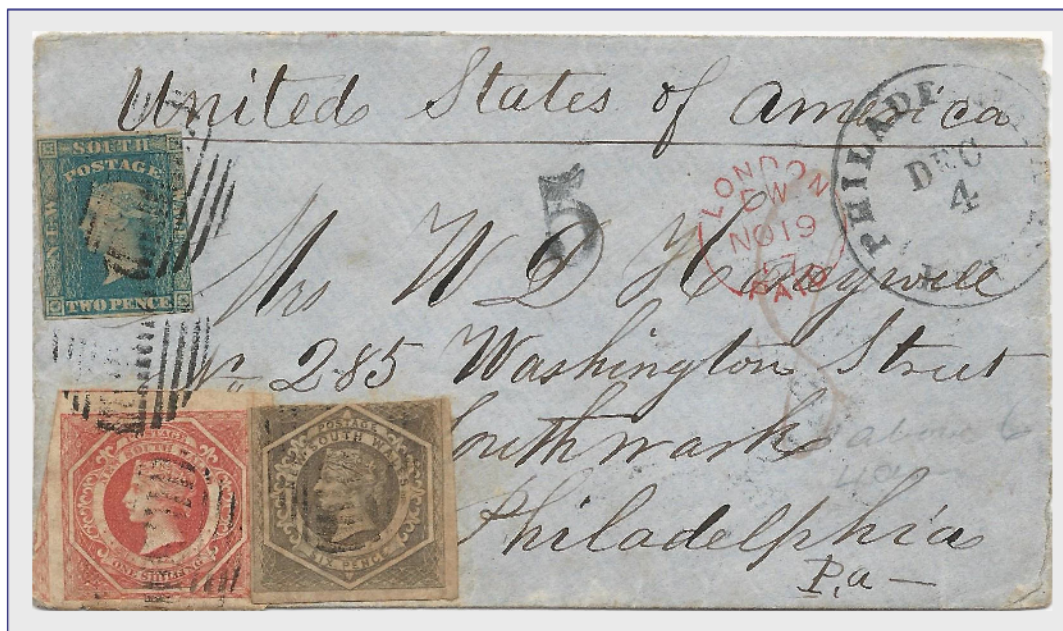 United States of America
SOUTH
POSTAGE
NEW
TWO PENCE
5
LONDON
NO 19
PAID
PHILADE
DEC
4
Mrs W D Honeywell
No 285 Washington Street
Southwark
Philadelphia
Pa
POSTAGE
NEW SOUTH WALES
ONE SHILLING
POSTAGE
NEW SOUTH WALES
SIX PENCE